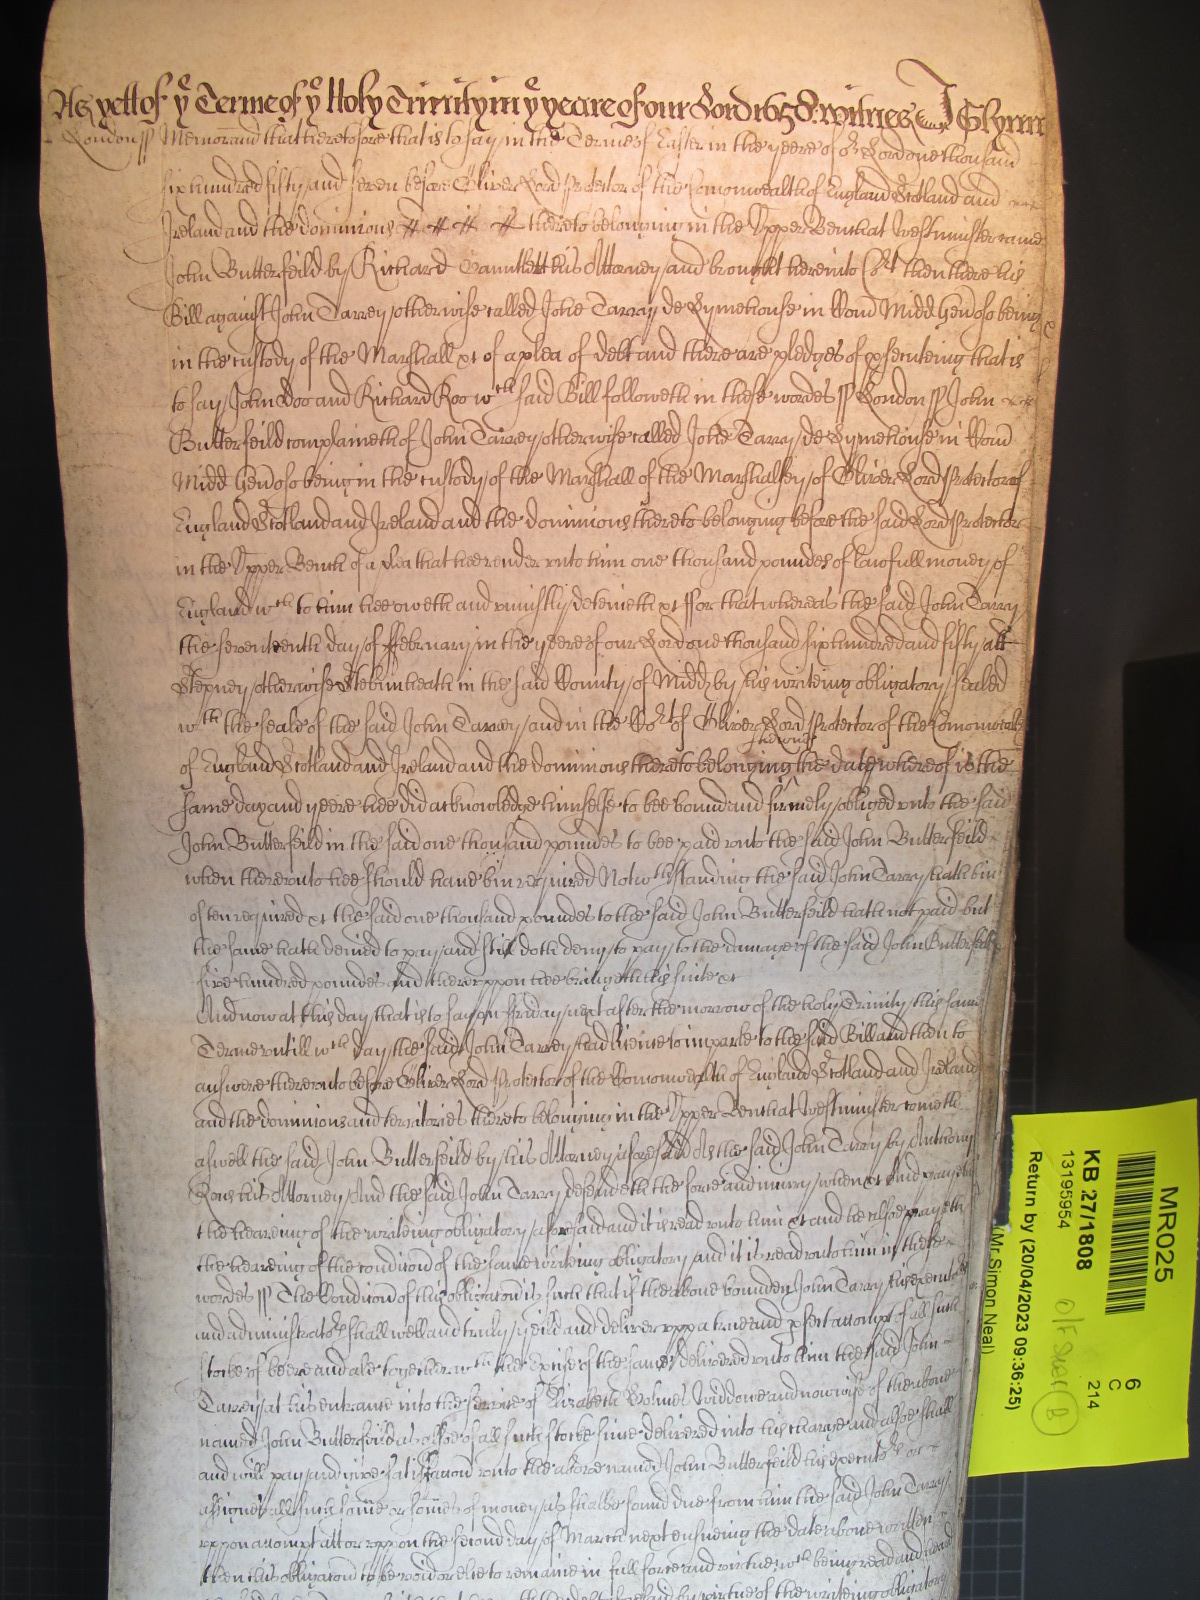 As yett of ye Terme of ye Holy Trinity in ye yeare of our Lord 1658. Witnes J Glynn
London ss Memorand that heretofore that is to say in the Terme of Easter in the yeere of or Lord one thousand
six hundred fifty and seven before Oliver Lord Protector of the Comonwealth of England Scotland and
Ireland and the dominions thereto belonging in the Upper Bench at Westminster came
John Butterfeild by Richard Gauntlett his Attorney and brought here into Crt then there his
Bill against John Tarrey otherwise called John Tarry de Lymehouse in Com Midd being
in the custody of the Marshall &c of a plea of debt and there are pledges of prsecuteing that is
to say John Doo and Richard Roo wch said Bill followeth in these wordes ss London ss John
Butterfeild complaineth of John Tarrey otherwise called John Tarry de Lymehouse in Com
Midd being in the custody of the Marshall of the Marshalsey of Oliver Lord Protector of
England Scotland and Ireland and the dominions thereto belonging before the said Lord Protector
in the Upper Bench of a Plea that hee render unto him one thousand poundes of lawfull money of
England wch to him hee oweth and uniustly deteineth &c ffor that whereas the said John Tarry
the seventeenth day of ffebruary in the yeere of our Lord one thousand six hundred and fifty att
Stepney otherwise Stebinheath in the said County of Midd by his writeing obligatory sealed
wth the seale of the said John Tarrey and in the Cort of Oliver Lord Protector of the Comonwealth
of England Scotland and Ireland and the dominions thereto belonging shewne the date whereof is the
same day and yeere hee did acknowledge himselfe to bee bound and firmely obliged unto the said
John Butterfeild in the said one thousand poundes to bee paid unto the said John Butterfeild
when thereunto hee should have bin required Notwthstanding the said John Tarry hath bin
often required &c the said one thousand poundes to the said John Butterfeild hath not paid but
the same hath denied to pay and still doth deny to pay to the damage of the said John Butterfeild
five hundred poundes and thereuppon hee bringeth his suite &c
And now at this day that is to say on Friday next after the morrow of the holy Trinity this same
Terme untill wch day the said John Tarrey had licence to imparle to the said Bill and then to
answere thereunto before Oliver Lord Protector of the Comonwealth of England Scotland and Ireland
and the dominions and territories thereto belonging in the Upper Bench at Westminster cometh
aswell the said John Butterfeild by his Attorney aforesaid As the said John Tarry by Anthony
his Attorney And the said John Tarry defendeth the force and iniury when &c And prayeth
the heareing of the writeing obligatory aforesaid and it is read unto him &c and he alsoe prayeth
the heareing of the condicion of the same writeing obligatory and it is read unto him in these
wordes ss The Condicion of this obligacon is such that if the above bounden John Tarry his execut
and administrators shall well and truly yeild and deliver uppa true and prfect accompt of all such
stocke of beere and ale together wth the of the same delivered unto him the said John
Tarrey at his entrance into the service of Elizabeth Holmes Widdowe and now wife of the above
named John Butterfeild as alsoe of all such stocke since delivered into his charge and alsoe shall
and will pay and give satisfaccon unto the above named John Butterfeild his executors or
assignes all such some or somes of money as shalbe found due from him the said John Tarry
uppon accompt att or uppon the second day of March next ensueing the date above written
then this obligacon to be void or else to remaine in full force and virtue wch being read and heard
by virtue of the writeing obligatory
MR025
6
C
214
KB 27/1808
13195954
Return by (20/04/2023 09:36:25)
(Mr Simon Neal)